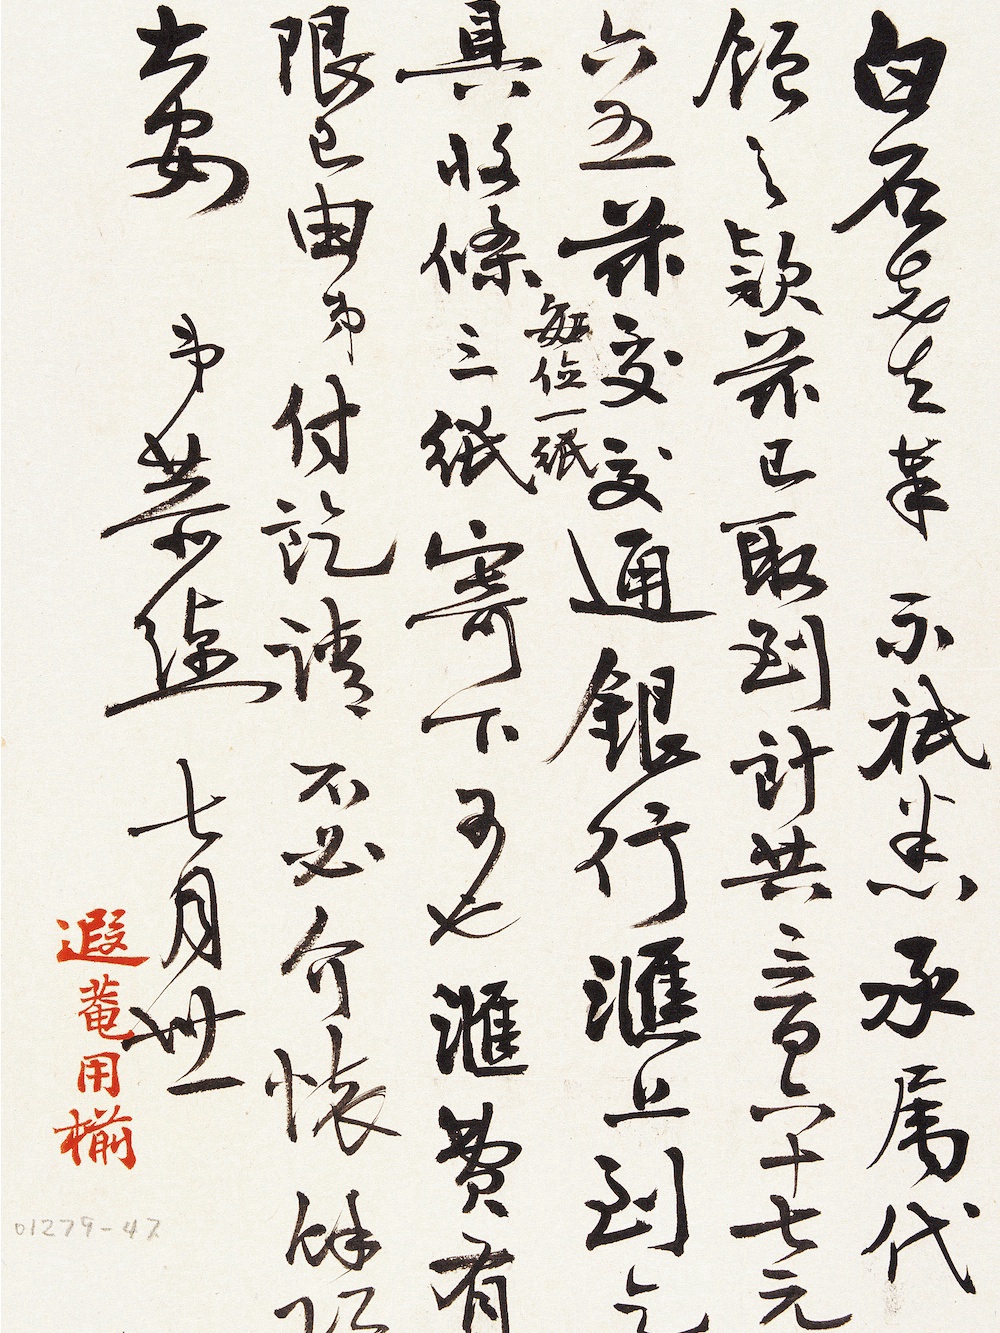 白石老先生 示祗悉承属代
領之款茲已取到計共三百六十七元
六五茲交交通銀行滙上到乞
具收條三紙每位一紙寄下可也滙費有
限已由弟付訖請不必介懷餘
大安 弟恭綽 七月卅一
遐菴用椾
01279-47